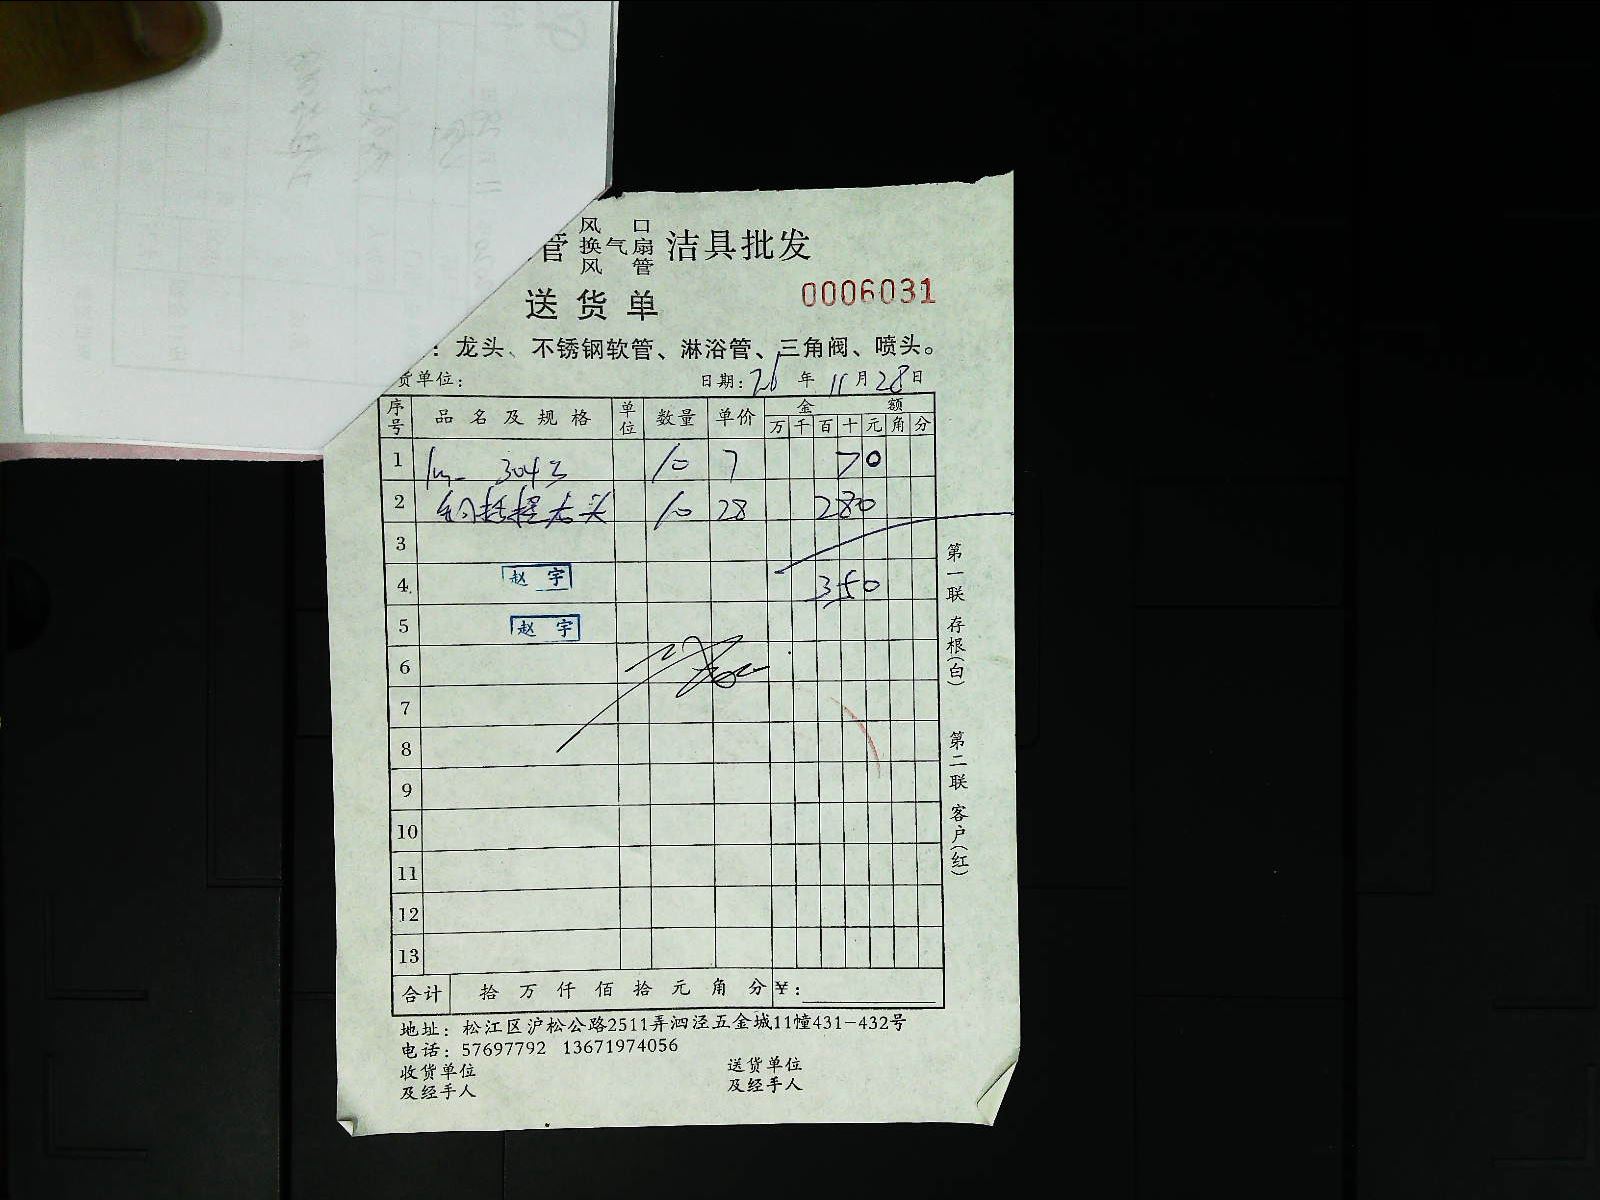 管 风口 换气扇 风管 洁具批发
送货单 0006031
：龙头、不锈钢软管、淋浴管、三角阀、喷头。
货单位： 日期：26年11月28日
序号 品名及规格 单位 数量 单价 金额
万 千 百 十 元 角 分
1 304 10 7 70
2 龙头 10 28 280
3
4 赵宇 350
5 赵宇
6
7
8
9
10
11
12
13
合计 拾 万 仟 佰 拾 元 角 分 ¥：
地址：松江区沪松公路2511弄泗泾五金城11幢431-432号
电话：57697792 13671974056
收货单位 送货单位
及经手人 及经手人
第一联 存根(白)
第二联 客户(红)